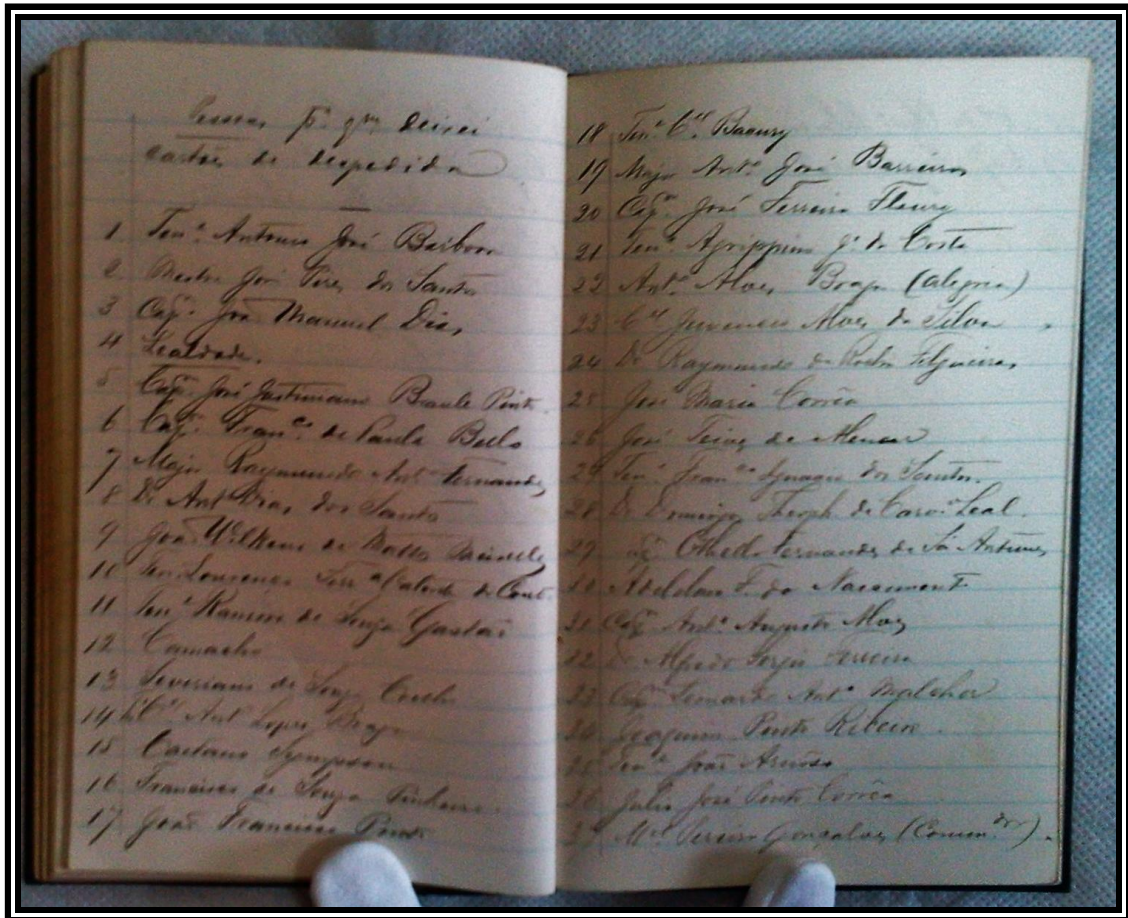 p.ª q.m deixei
cartões de despedida
1 Ten.e Antonio José Barbosa
2 José Pires dos Santos
3 Cap.m João Manuel Dias
4 Lealdade.
5 Cap.m José Justiniano Braule Pinto.
6 Cap.m Fran.co de Paula Bello
7 Major Raymundo Ant.º Fernandes
8 Dr Ant.º Dias dos Santos
9 João Wilkens de Mattos
10 Ten. Lourenço
11 Ten.e Ramiro de Souza Gastão
12 Camacho
13 Severiano de Souza
14 Ant.º Lopes Braga
15 Caetano Sympson
16 Francisco de Souza Pinheiro.
17 João Francisco Pinto
18 Ten.e C.el Baeury
19 Major Ant.º José Barreiros
20 Cap.m José Ferreira Fleury
21 Ten.e Agrippino da Costa
22 Ant.º Alves Braga (Alegria)
23 C.el Alves da Silva
24 Dr Raymundo da Rocha Filgueiras
25 José Maria Corrêa
26 José de Alencar
27 Ten.e Fran.co Ignacio dos Santos.
28 Dr Domingos Theoph. de Carv.º Leal.
29 Fernandes de Sá Antunes
30 Adelelmo F. do Nascimento
31 Cap.m Ant.º Augusto Alves
32 Dr Alfredo Sergio Ferreira
33 Cap.m Leonardo Ant.º Malcher
34 Joaquim Pinto Ribeiro.
35 Ten.e João
36 Julio José Pinto Corrêa
37 M.el Pereira Gonçalves (Comm.dor).